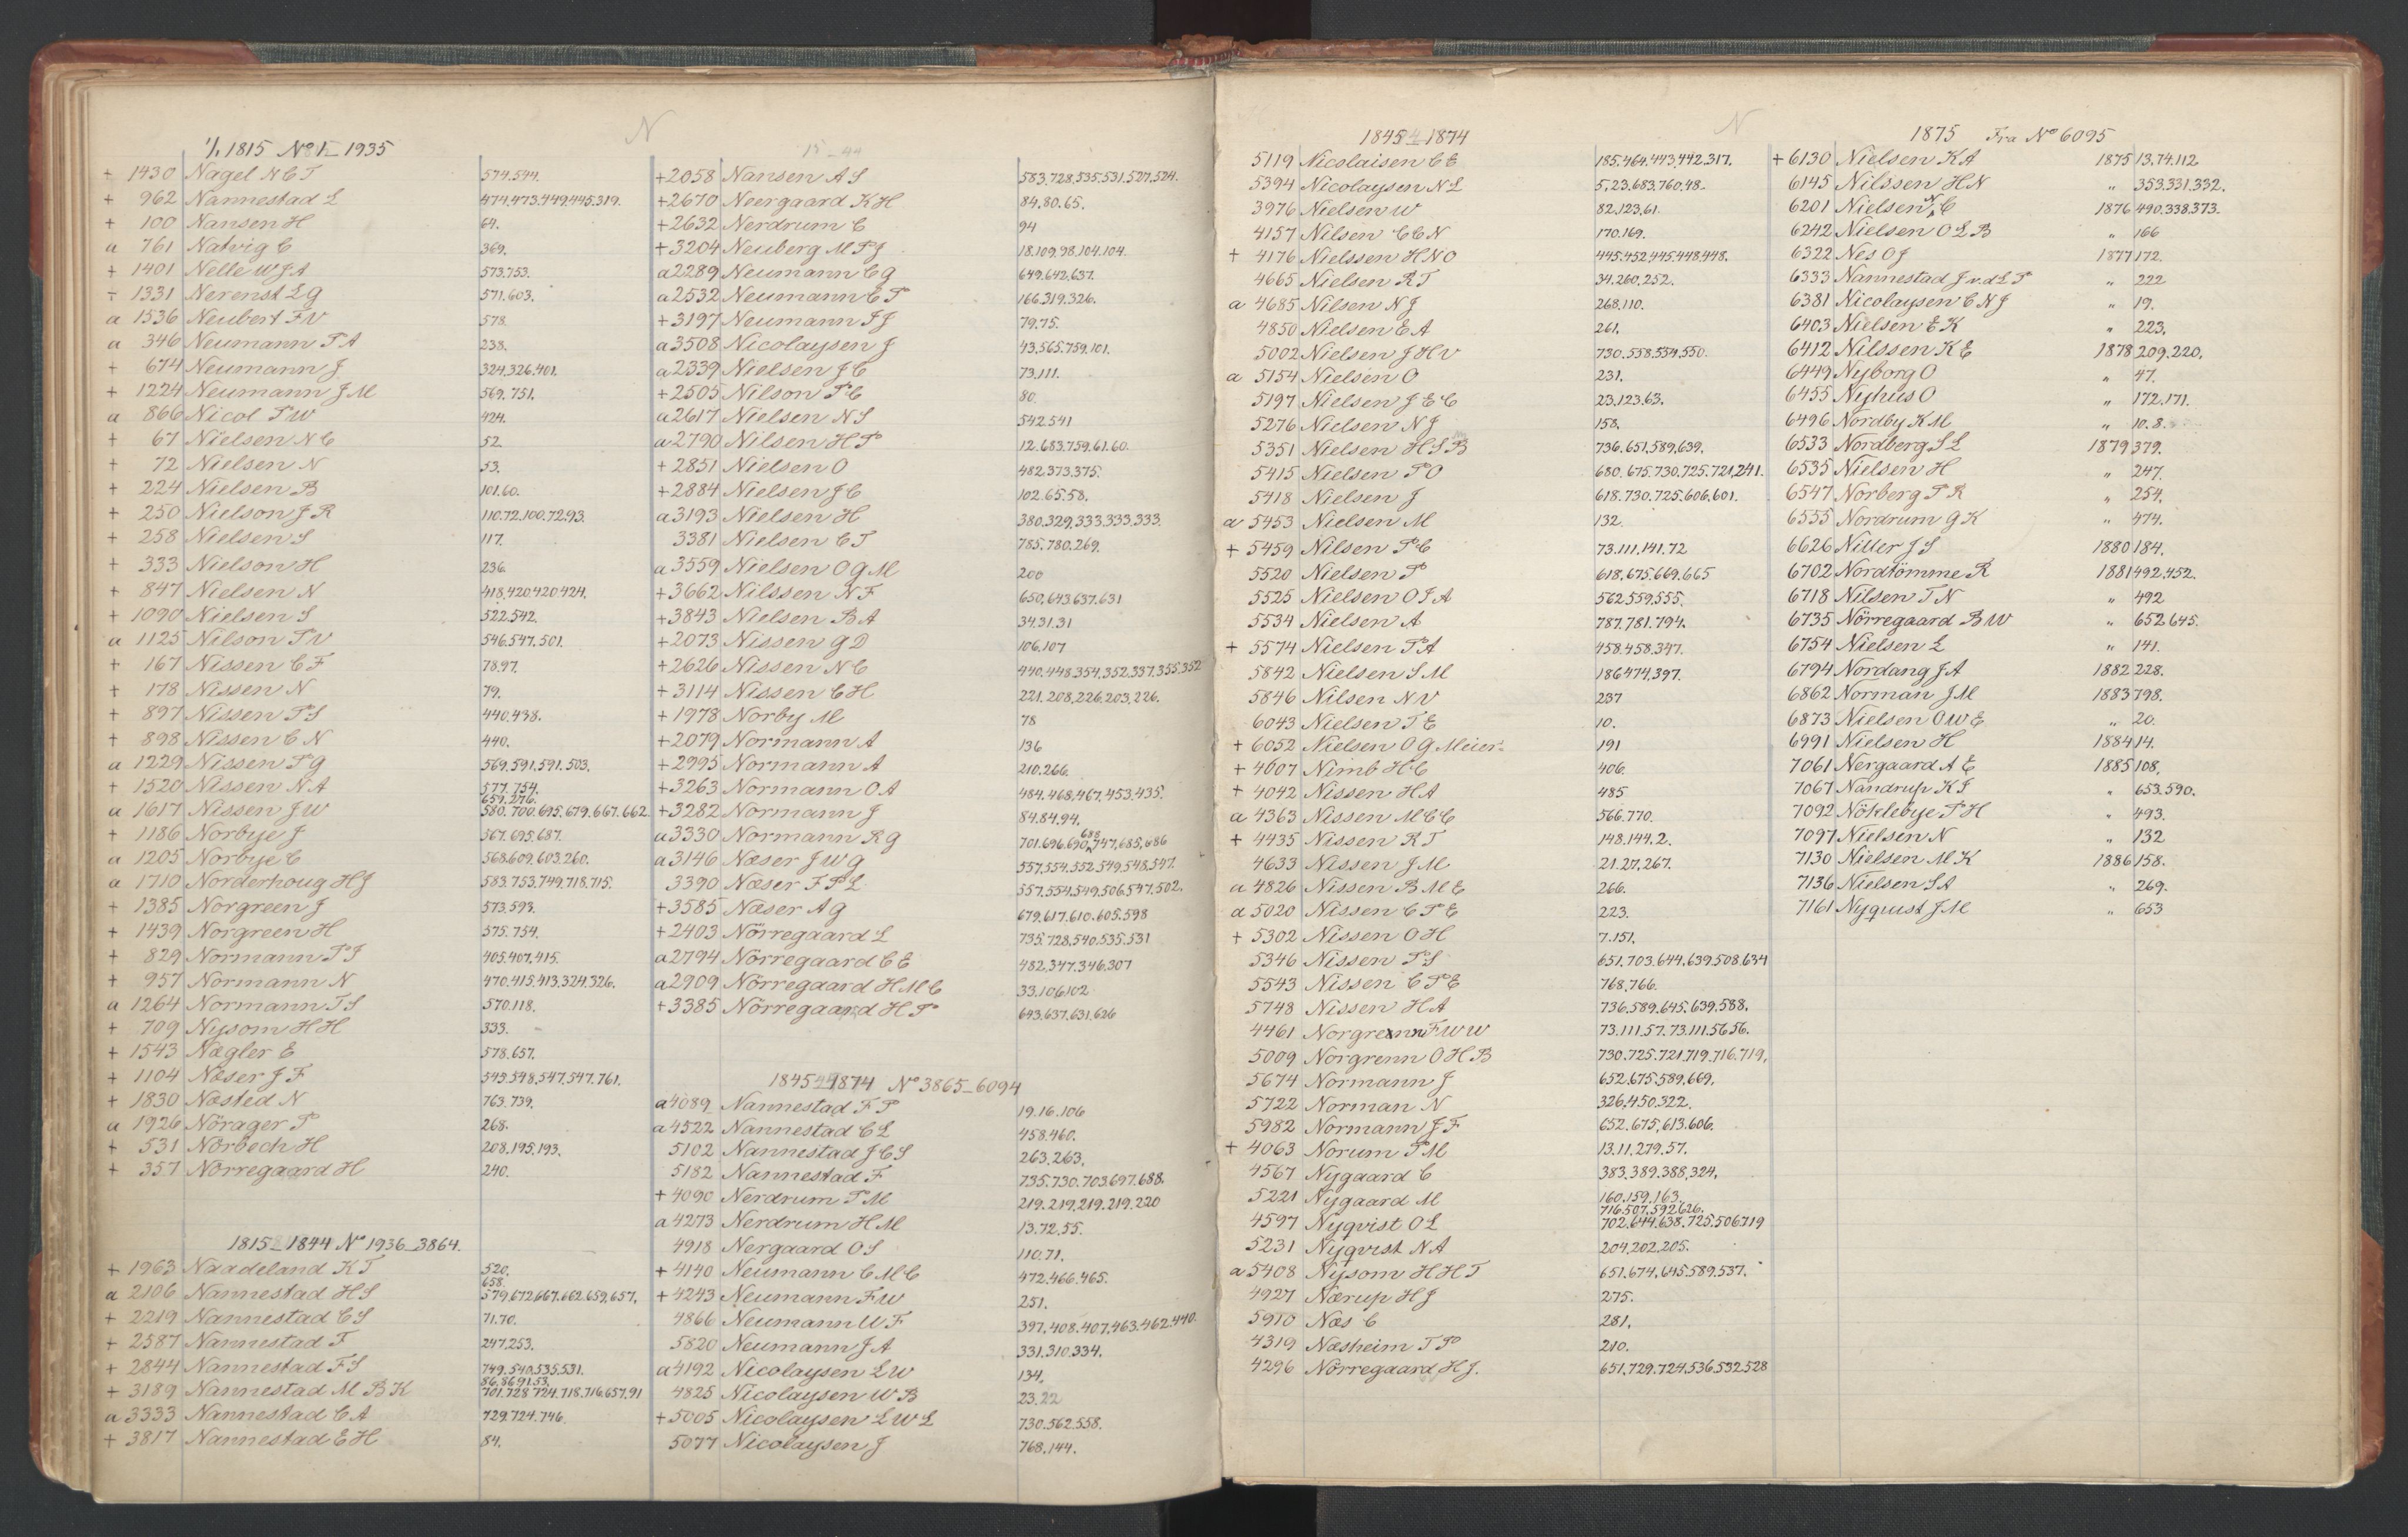 N
1/1 1815 No 1_1935
+ 1430 Nagel N C T 574.544.
+ 962 Nannestad L 474.473.449.445.319.
+ 100 Nansen H 64.
a 761 Natvig C 369.
+ 1401 Nelle W J A 573.753.
+ 1331 Nerenst L G 571.603.
a 1536 Neubert F V 578
a 346 Neumann P A 238.
+ 674 Neumann J 324.326.401.
+ 1224 Neumann J M 569.751.
a 866 Nicol P W 424.
+ 67 Nielsen N C 52.
+ 72 Nielsen N 53.
+ 224 Nielsen B 101.60.
+ 250 Nielson J R 110.72.100.72.93.
+ 258 Nielsen S 117.
+ 333 Nielson H 236.
+ 847 Nielsen N 418.420.420.424.
+ 1090 Nielsen S 522.542.
a 1125 Nilson P V 546.547.501.
+ 167 Nissen C F 78.97.
+ 178 Nissen N 79.
+ 897 Nissen P S 440.438.
+ 898 Nissen C N 440.
a 1229 Nissen P G 569.591.591.503.
+ 1520 Nissen N A 577.754.
659.276.
a 1617 Nissen J W 580.700.695.679.667.662.
+ 1186 Norbye J 567.695.687.
a 1205 Norbye C 568.609.603.260.
a 1710 Norderhoug H J 583.753.749.718.715.
+ 1385 Norgreen J 573.593.
+ 1439 Norgreen H 575.754.
+ 829 Normann P S 405.407.415.
+ 957 Normann N 470.415.413.324.326.
a 1264 Normann T S 570.118.
+ 709 Nysom H H 333.
+ 1543 Nægler E 578.657.
+ 1104 Næser J F 549.548.547.547.761.
+ 1830 Næsted N 763.739.
a 1926 Nörager P 268.
+ 531 Nörbech H 208.195.193.
+ 357 Nörregaard H 240.
1815_1844 No 1936_3864.
+ 1963 Naadeland K T 520.
658.
a 2106 Nannestad H S 579.672.667.662.659.657.
+ 2219 Nannestad C S 71.70.
+ 2587 Nannestad T 247.253.
+ 2844 Nannestad F S 749.540.535.531.
86.86.91.53.
+ 3189 Nannestad M B K 701.728.724.718.716.657.91
a 3333 Nannestad C A 729.724.746.
+ 3817 Nannestad E H 84.
15_44
+2058 Nansen A S 583.728.535.531.527.524.
+2670 Neergaard K H 84.80.65.
+2632 Nerdrum C 94
+3204 Neuberg M P J 18.109.98.104.104.
a2289 Neumann C G 649.642.637.
a2532 Neumann C P 166.319.326.
+3197 Neumann J J 79.75.
a3508 Nicolaysen J 43.565.759.101.
a2339 Nielsen J C 73.111.
+2505 Nilson P C 80
a2617 Nielsen N S 542.541
a2790 Nilsen H P 12.683.759.61.60.
+2851 Nielsen O 482.373.375.
+2884 Nielsen J C 102.65.58.
a3193 Nielsen H 380.329.333.333.333.
3381 Nielsen C T 785.780.269.
a3559 Nielsen O G M 200
+3662 Nilssen N F 650.643.637.631
+3843 Nielsen B A 34.31.31
+2073 Nissen G D 106.107
+2626 Nissen N C 440.448.354.352.337.355.352
+3114 Nissen C H 221.208.226.203.226.
+1978 Norby M 78
+2079 Normann A 136
+2995 Normann A 210.266.
+3263 Normann O A 484.468.467.453.435.
+3282 Normann J 84.84.94.
a3330 Normann R G 701.696.690.688.747.685.686
a3146 Næser J W G 557.554.552.549.548.547.
3390 Næser F P L 557.554.549.506.547.502.
+3585 Næser A G 679.617.610.605.598
+2403 Nörregaard L 735.728.540.535.531
a2794 Nörregaard C E 482.347.346.307
a2909 Nörregaard H M C 33.106.102
+3385 Nörregaard H P 643.637.631.626
1845_1874 No 3865_6094
a4089 Nannestad F P 19.16.106
a4522 Nannestad C L 458.460.
5102 Nannestad J C S 263.263.
5182 Nannestad F 735.730.703.697.688.
+4090 Nerdrum P M 219.219.219.219.220
a4273 Nerdrum H M 13.72.55.
4918 Nergaard O S 110.71.
+4140 Neumann C M C 472.466.465.
+4243 Neumann F W 251.
4866 Neumann W F 397.408.407.463.462.440.
5820 Neumann J A 331.310.334.
a4192 Nicolaysen L W 134.
4825 Nicolaysen W B 23.22
+5005 Nicolaysen L W L 730.562.558.
5077 Nicolaysen J 768.144.
N
1845_1874
5119 Nicolaisen C E 185.464.443.442.317.
5394 Nicolaysen N L 5.23.683.760.48.
3976 Nielsen W 82.123.61.
4157 Nilsen C C N 170.169.
+ 4176 Nielssen H N O 445.452.445.448.448.
4665 Nielsen R T 34.260.252.
a 4685 Nilsen N J 268.110.
4850 Nielsen E A 261.
5002 Nielsen J H V 730.558.554.550.
a 5154 Nielsen O 231.
5197 Nielsen J E C 23.123.63.
5276 Nielsen N J 158.
5351 Nielsen H S B 736.651.589.639.
5415 Nielsen P O 680.675.730.725.721.241.
5418 Nielsen J 618.730.725.606.601.
a 5453 Nielsen M 132.
+ 5459 Nilsen P C 73.111.141.72
5520 Nielsen P 618.675.669.665
5525 Nielsen O J A 562.559.555.
5534 Nielsen A 787.781.794.
+ 5574 Nielsen P A 458.458.347.
5842 Nielsen S M 186.474.397.
5846 Nilsen N V 237
6043 Nielsen T E 10.
+ 6052 Nielsen O G Meier 191
+ 4007 Nimb H C 406.
+ 4042 Nissen H A 485
a 4363 Nissen M C C 566.770.
+ 4435 Nissen R T 148.144.2.
4633 Nissen J M 21.27.267.
a 4826 Nissen B M E 266.
a 5020 Nissen C P E 223.
+ 5302 Nissen O H 7.151.
5346 Nissen P S 651.703.644.639.508.634
5543 Nissen C P E 768.766.
5748 Nissen H A 736.589.645.639.588.
4461 Norgrenn F W W 73.111.57.73.111.56.56.
5009 Norgrenn O H B 730.725.721.719.716.719.
5674 Normann J 652.675.589.669.
5722 Norman N 326.450.322.
5982 Normann J F 652.675.613.606.
+ 4063 Norum P M 13.11.279.57.
4567 Nygaard C 383.389.388.324.
5221 Nygaard M 160.159.163.
716.507.592.626.
4597 Nyqvist O L 702.644.638.725.506.719
5231 Nyqvist N A 204.202.205.
a 5408 Nysom H H T 651.674.645.589.537.
4927 Nærup H J 275.
5970 Næs C 281.
4319 Næsheim T P 210.
4296 Nörregaard H J. 651.729.724.536.532.528
1875 Fra No 6095
+ 6130 Nielsen K A 1875 13.74.112
6145 Nilssen H N " 353.331.332.
6201 Nielsen N C 1876 490.338.373.
6242 Nielsen O L B " 166
6322 Nes O J 1877 172.
6333 Nannestad J v.d L P " 222
6381 Nicolaysen C N J " 19.
6403 Nielsen E K " 223.
6412 Nilssen K E 1878 209.220.
6449 Nyborg O " 47.
6455 Nyhus O " 172.171.
6496 Nordby K M " 10.8.
6533 Nordberg S L 1879 379.
6535 Nielsen H " 247.
6547 Norberg P R " 254.
6555 Nordrum G K " 474.
6626 Nitter J S 1880 184.
6702 Nordtömme R 1881 492.452.
6718 Nilsen T N " 492
6735 Nörregaard B W " 652.645.
6754 Nielsen L " 141.
6794 Nordang J A 1882 228.
6862 Norman J M 1883 798.
6873 Nielsen O W E " 20.
6991 Nielsen H 1884 14.
7061 Nergaard A E 1885 108.
7067 Nandrup K S " 653.590.
7092 Nöklebye P H " 493.
7097 Nielsen N " 132
7130 Nielsen M K 1886 158.
7136 Nielsen S A " 269.
7161 Nyquist J M " 653